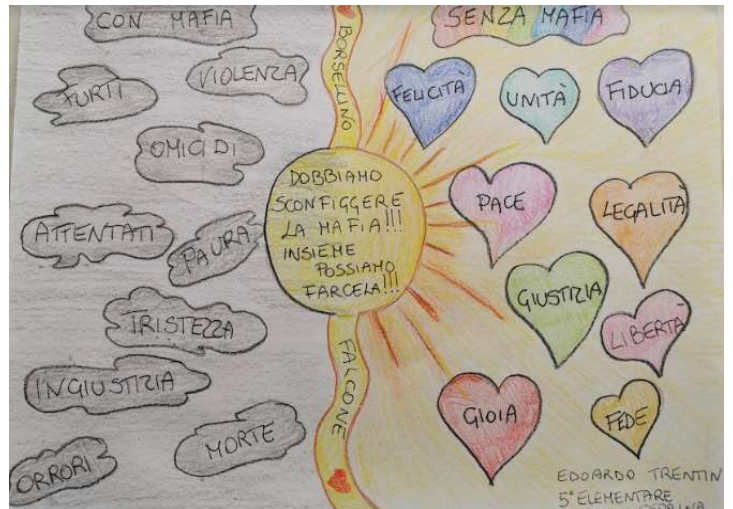 CON MAFIA
FURTI
VIOLENZA
OMICIDI
ATTENTATI
PAURA
TRISTEZZA
INGIUSTIZIA
MORTE
ORRORI
BORSELLINO
DOBBIAMO
SCONFIGGERE
LA MAFIA!!!
INSIEME
POSSIAMO
FARCELA!!!
FALCONE
SENZA MAFIA
FELICITÀ
UNITÀ
FIDUCIA
PACE
LEGALITÀ
GIUSTIZIA
LIBERTÀ
GIOIA
FEDE
EDOARDO TRENTIN
5ª ELEMENTARE